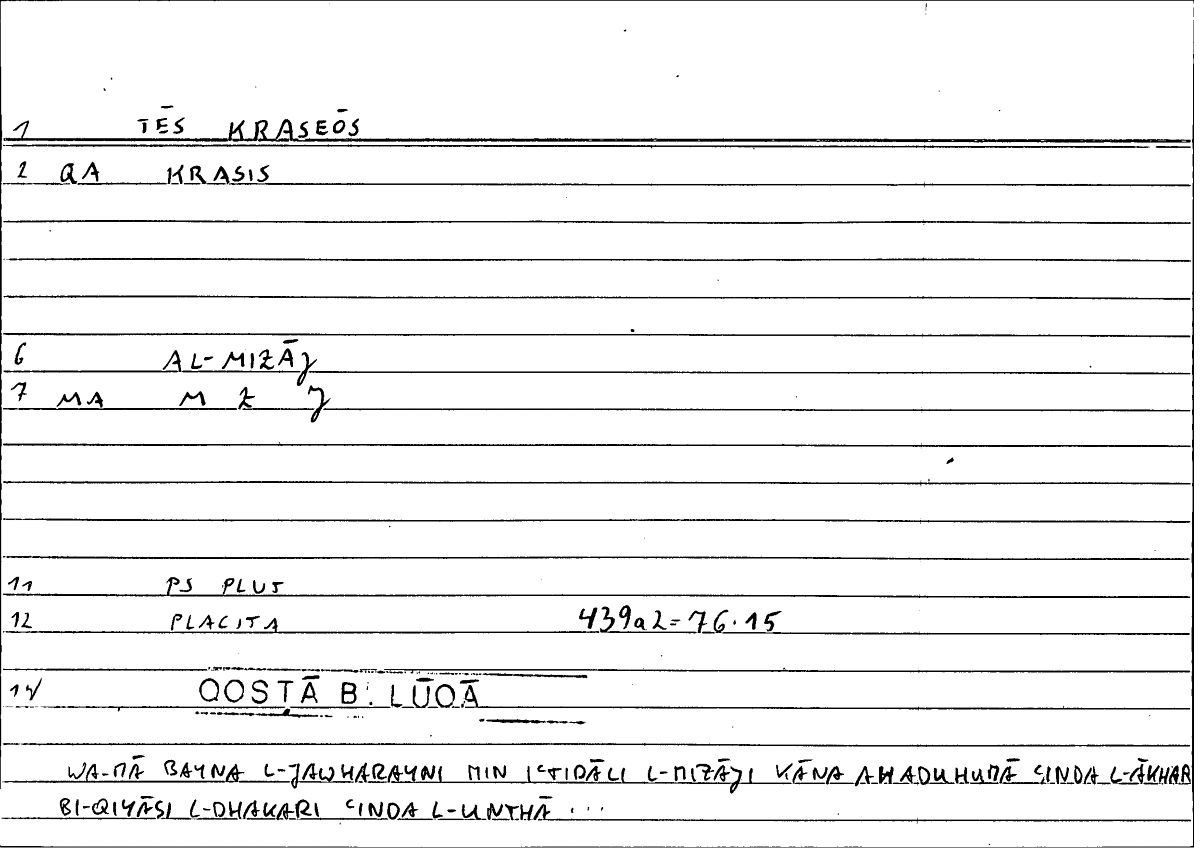 1 TĒS KRASEŌS
2 QA KRASIS
6 AL-MIZĀJ
7 MA M Z J
11 PS PLUT
12 PLACITA 439a2=76.15
14 QOSTĀ B. LŪQĀ
WA-MĀ BAYNA L-JAWHARAYNI MIN IʿTIDĀLI L-MIZĀJI KĀNA AḤADUHUMĀ ʿINDA L-ĀKHAR
BI-QIYĀSI L-DHAKARI ʿINDA L-UNTHĀ ...